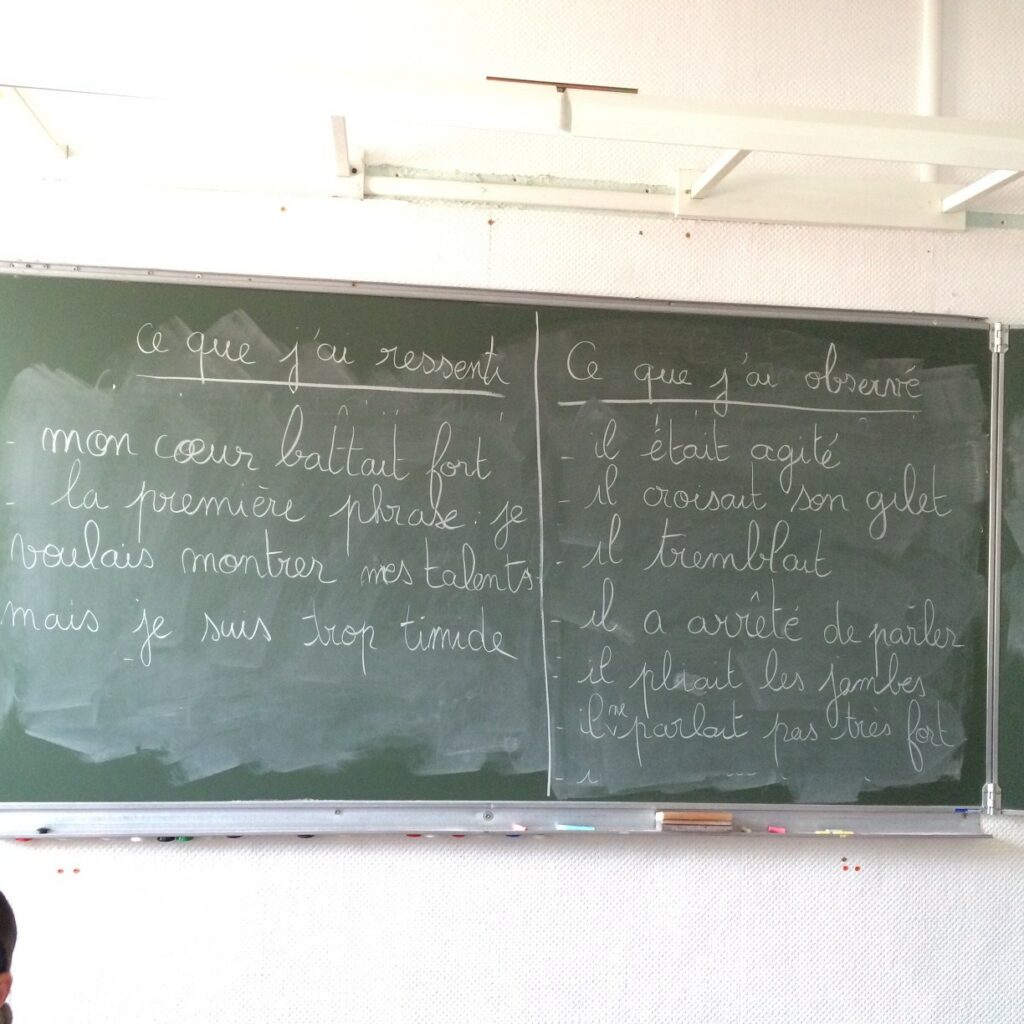 ce que j'ai ressenti
- mon cœur battait fort
- la première phrase : je
voulais montrer mes talents
mais je suis trop timide
-
Ce que j'ai observé
- il était agité
- il croisait son gilet
- il tremblait
- il a arrêté de parler
- il pliait les jambes
- il ne parlait pas très fort
-